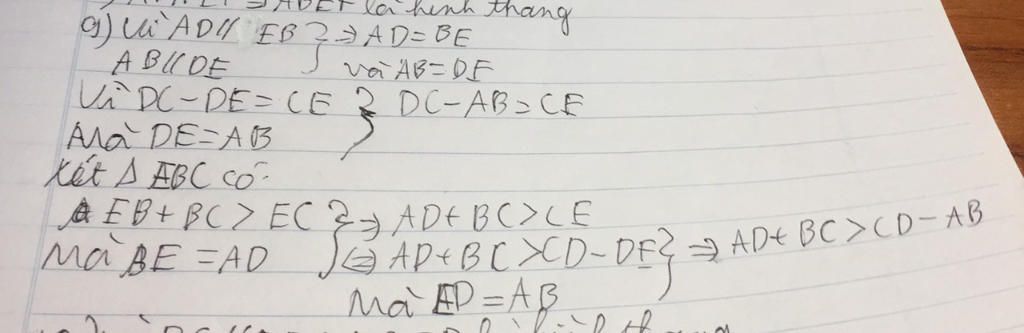 ⇒ ABEF là hình thang
g) Vì AD // EB } ⇒ AD = BE
AB // DE và AB = DE
Vì DC - DE = CE } DC - AB = CE
Mà DE = AB
Xét Δ EBC có:
EB + BC > EC } ⇒ AD + BC > CE
Mà BE = AD ⇔ AD + BC > CD - DE } ⇒ AD + BC > CD - AB
Mà ED = AB
hình thang